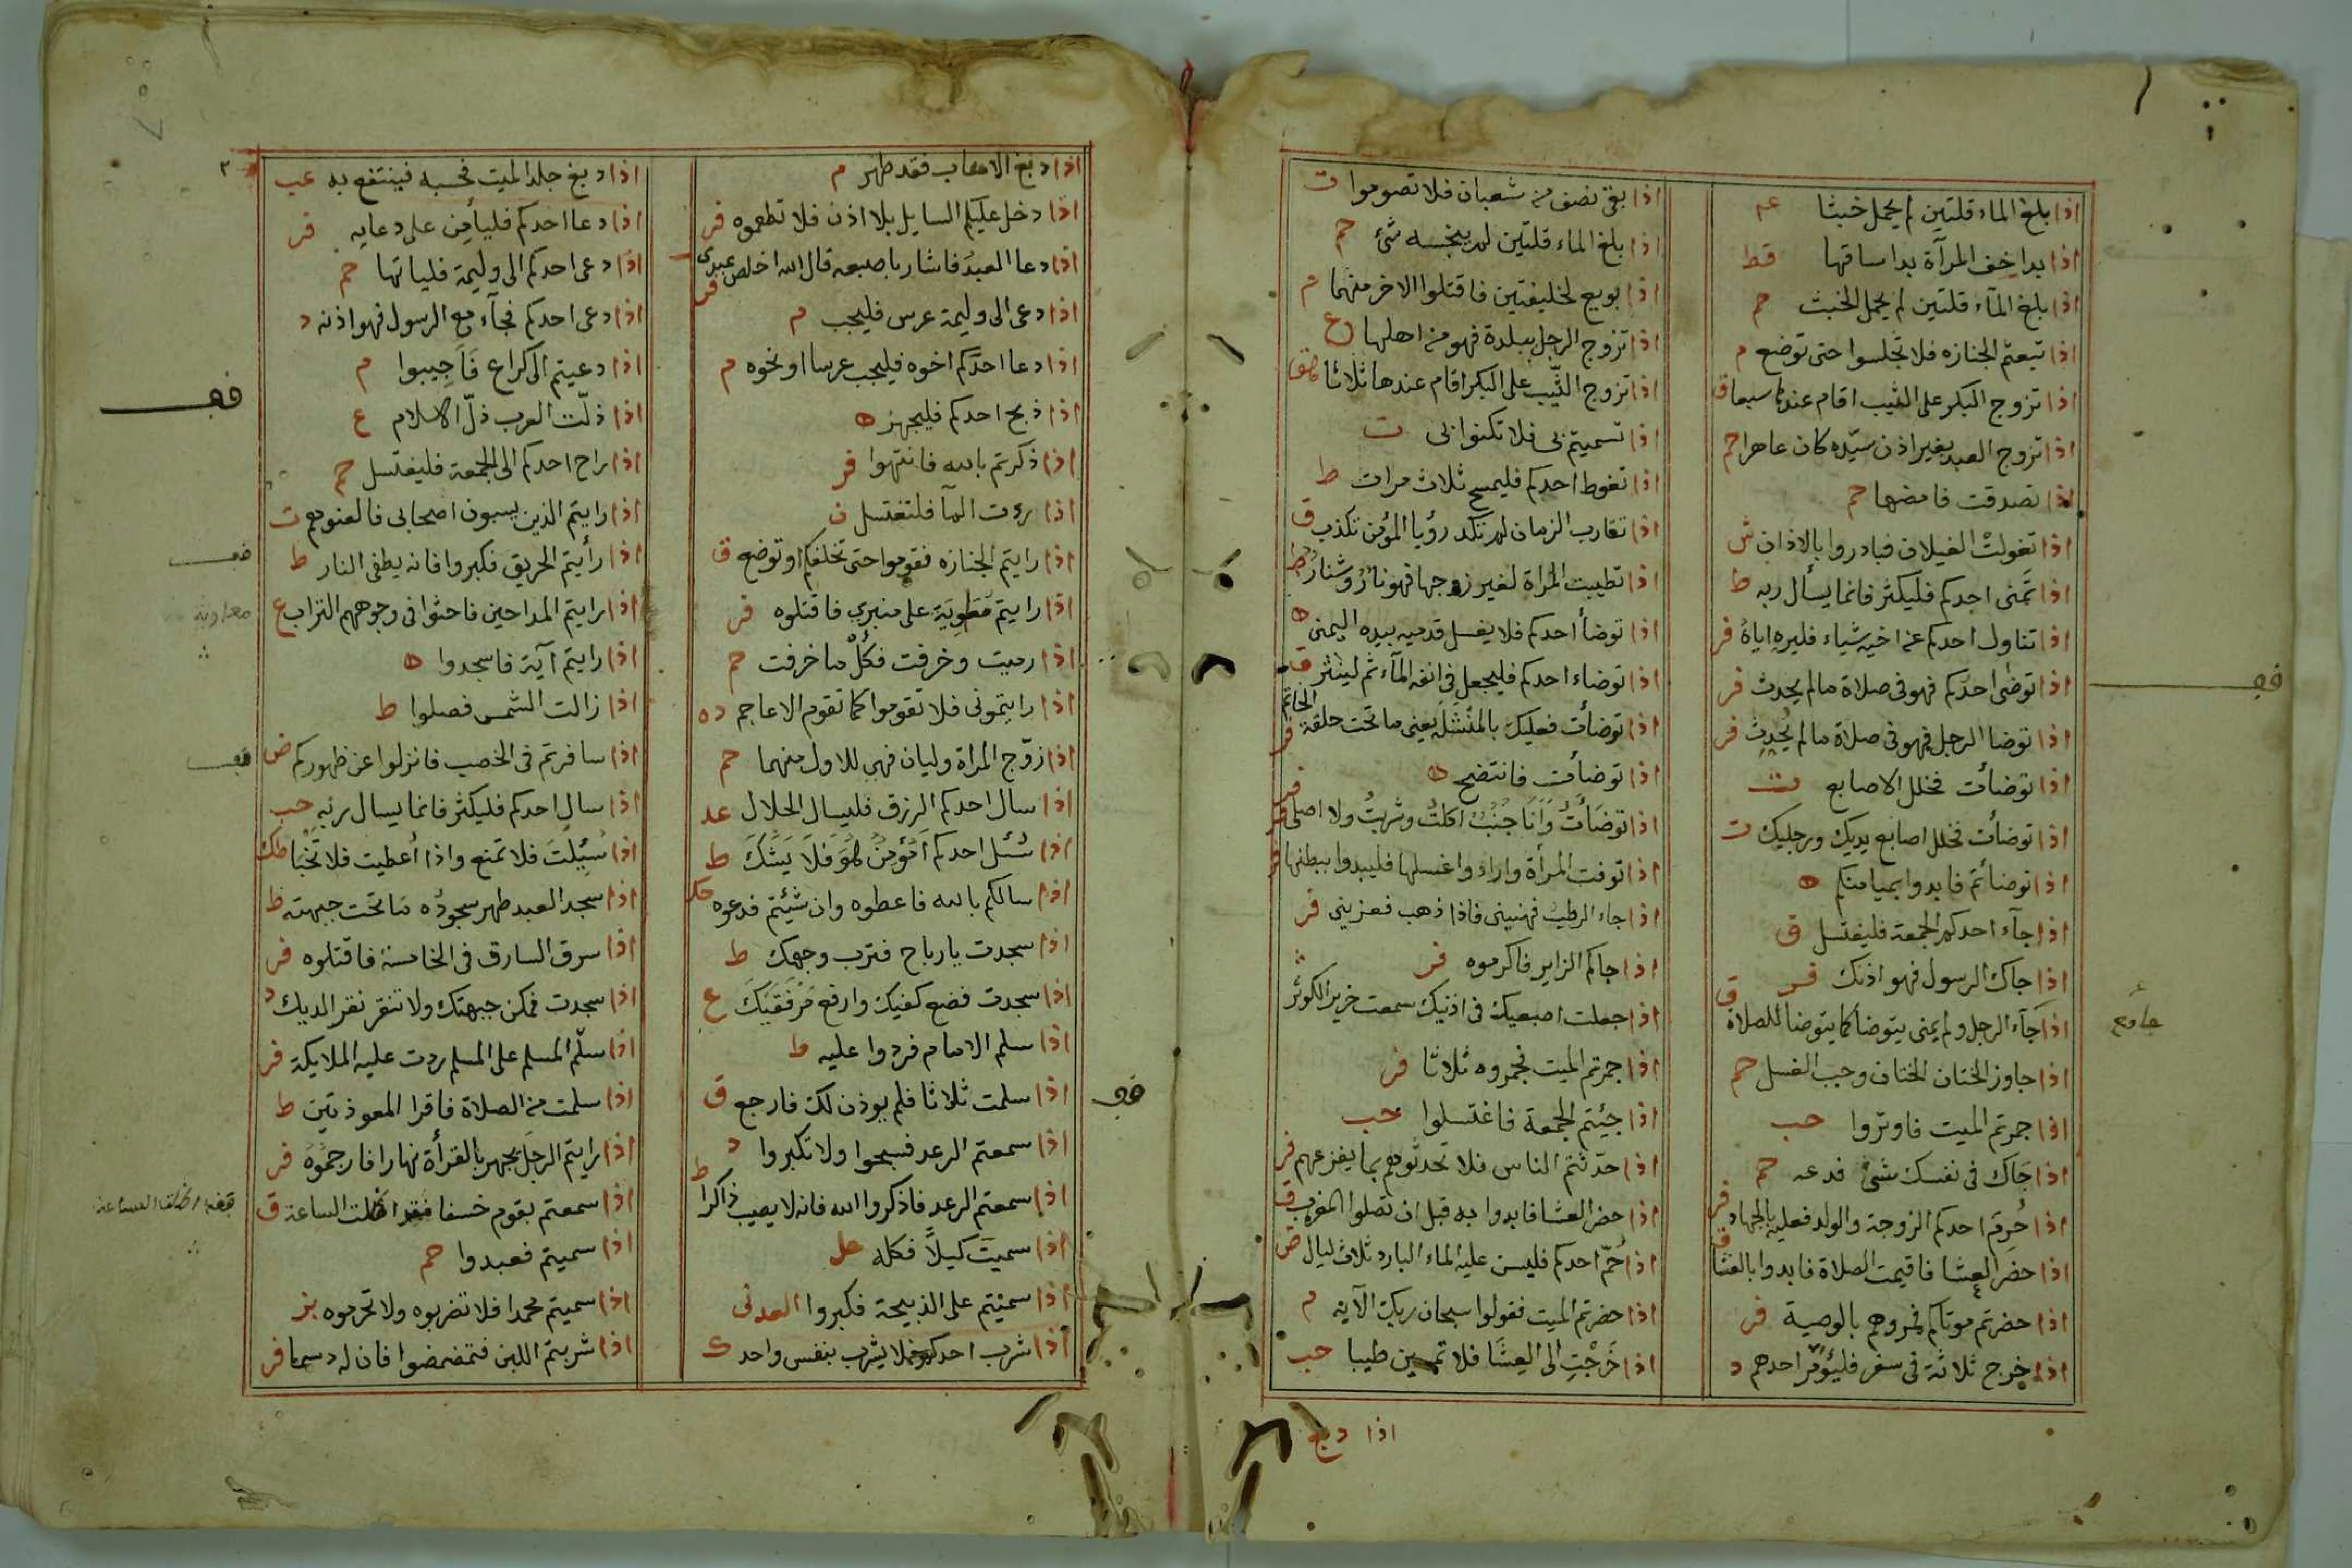 اذا بلغ الماء قلتين لم يحمل خبثا عم
اذا بدا خف المرآة بدا ساقها قط
اذا بلغ المآء قلتين لم يحمل الخبث حم
اذا تبعتم الجنازه فلا تجلسوا حتى توضع م
اذا تزوج البكر على الثيب اقام عندها سبعا ق
اذا تزوج العبد بغير اذن سيّده كان عاهرا حم
اذا تصدقت فامضها حم
اذا تغولت الغيلان فبادروا بالاذان ش
اذا تمنى احدكم فليكثر فانما يسأل ربه ط
اذا تناول احدكم عن اخيه شياء فليره اياه فر
اذا توضى احدكم فهو فى صلاة مالم يحدث فر
اذا توضا الرجل فهو فى صلاة مالم يحدث فر
اذا توضأت فخلل الاصابع ت
اذا توضأت فخلل اصابع يديك ورجليك ت
اذا توضأتم فابدوا بميامنكم ه
اذا جآء احدكم الجمعة فليغتسل ق
اذا جاك الرسول فهو اذنك فر
اذا جآء الرجل ولم يمنى يتوضأ كما يتوضا للصلاة ق
اذا جاوز الختان الختان وجب الغسل حم
اذا جمرتم الميت فاوتروا حب
اذا جاك فى نفسك شئ فدعه حم
اذا حرم احدكم الزوجة والولد فعليه بالجهاد فر
اذا حضر العشا فاقيمت الصلاة فابدوا بالعشا ق
اذا حضرتم موتاكم فمروهم بالوصية فر
اذا خرج ثلاثة فى سفر فليؤمر احدهم د
اذا بقى نصف من شعبان فلا تصوموا ت
اذا بلغ الماء قلتين لم ينجسه شئ حم
اذا بويع لخليفتين فاقتلوا الاخر منهما م
اذا تزوج الرجل ببلدة فهو من اهلها ع
اذا تزوج الثيب على البكر اقام عندها ثلاثا
اذا تسميتم بى فلا تكنوا بى ت
اذا تغوط احدكم فليمسح ثلاث مرات ط
اذا تقارب الزمان لم تكد رؤيا المؤمن تكذب ق
اذا تطيبت المراة لغير زوجها فهو نار وشنار ط
اذا توضأ احدكم فلا يغسل قدميه بيده اليمنى ه
اذا توضاء احدكم فليجعل فى انفه المآء ثم لينثر ق
اذا توضأت فعليك بالمنشلة يعنى ما تحت حلقة الخاتم فر
اذا توضأت فانتضح ه
اذا توضأت وانا جنب اكلت وشربت ولا اصلى
اذا توفت المرأة واراد وا غسلها فليبدوا ببطنها
اذا جاء الرطب فهنينى فاذا ذهب فعزينى فر
اذا جاكم الزاير فاكرموه فر
اذا جعلت اصبعيك فى اذنيك سمعت خرير الكوثر
اذا جمرتم الميت فجمروه ثلاثا فر
اذا جئيتم الجمعة فاغتسلوا حب
اذا حدثتم الناس فلا تحدثوهم بما يفزعهم فر
اذا حضر العشا فابدوا به قبل ان تصلوا المغرب ق
اذا حمّ احدكم فليسن عليه الماء البارد ثلاث ليال ض
اذا حضرتم الميت فقولوا سبحان ربك الآيه م
اذا خرجت الى العشا فلا تمسين طيبا حب
اذا دبغ
جامع
اذا دبغ الاهاب فقد طهر م
اذا دخل عليكم السايل بلا اذن فلا تطعموه فر
اذا دعا العبد فاشار باصبعه قال الله اخلص عبدى فر
اذا دعى الى وليمة عرس فليجب م
اذا دعا احدكم اخوه فليجب عرسا او نحوه م
اذا ذبح احدكم فليجهز ه
اذا ذكرتم بالله فانتهوا فر
اذا رءت المآ فلتغتسل ن
اذا رايتم الجنازه فقوموا حتى تخلفكم او توضع ق
اذا رايتم معوية على منبرى فاقتلوه فر
اذا رميت وخرقت فكل ما خرقت حم
اذا رايتمونى فلا تقوموا كما تقوم الاعاجم ده
اذا زوّج المراة وليان فهى للاول منهما حم
اذا سال احدكم الرزق فليسال الحلال عد
اذا سئل احدكم امؤمن هو فلا يشك ط
اذا سالكم بالله فاعطوه وان شئيتم فدعوه
اذا سجدت يارباح فترب وجهك ط
اذا سجدت فضع كفيك وارفع مرفقيك ع
اذا سلم الامام فردوا عليه ط
اذا سلمت ثلاثا فلم يوذن لك فارجع ق
اذا سمعتم الرعد فسبحوا ولا تكبروا د
اذا سمعتم الرعد فاذكروا الله فانه لا يصيب ذاكرا ط
اذا سميت كيلاً فكله حل
اذا سميتم على الذبيحة فكبروا العدنى
اذا شرب احدكم فلا يشرب بنفس واحد ك
اذا دبغ جلد الميت فحسبه فينتفع به عب
اذا دعا احدكم فليأمن على دعايه فر
اذا دعى احدكم الى وليمة فلياتها حم
اذا دعى احدكم فجآء مع الرسول فهو اذنه د
اذا دعيتم الى كراع فاجيبوا م
اذا ذلّت العرب ذلّ الاسلام ع
اذا راح احدكم الى الجمعة فليغتسل حم
اذا رايتم الذين يسبون اصحابى فالعنوهم ت
اذا رأيتم الحريق فكبروا فانه يطفى النار ط
اذا رايتم المداحين فاحثوا فى وجوههم التراب ع
اذا رايتم آية فاسجدوا ه
اذا زالت الشمس فصلوا ط
اذا سافرتم فى الخصب فانزلوا عن ظهوركم ض
اذا سال احدكم فليكثر فانما يسال ربه حب
اذا سئيلت فلا تمنع واذا اعطيت فلا تخبا
اذا سجد العبد طهر سجوده ما تحت جبهته ط
اذا سرق السارق فى الخامسة فاقتلوه فر
اذا سجدت فمكن جبهتك ولا تنقر نقر الديك
اذا سلّم المسلم على المسلم ردت عليه الملايكة فر
اذا سلمت من الصلاة فاقرا المعوذتين ط
اذا رايتم الرجل يجهر بالقرأة نهارا فارجموه فر
اذا سمعتم بقوم خسفا فقد اظلت الساعة ق
اذا سميتم فعبدوا حم
اذا سميتم محمدا فلا تضربوه ولا تحرموه بز
اذا شربتم اللبن فتمضمضوا فان له دسما فر
معاوية